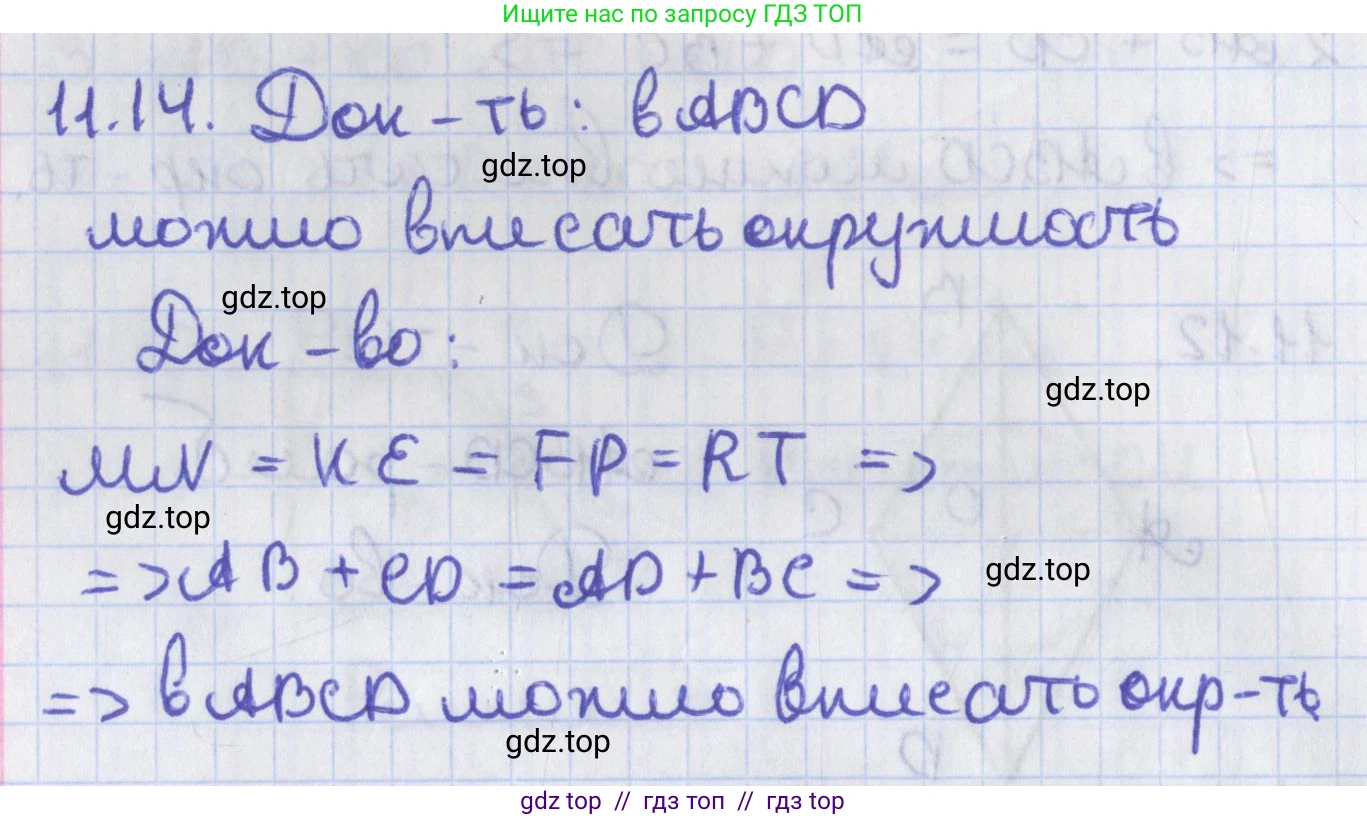 Ищите нас по запросу ГДЗ ТОП
11.14. Док-ть: в ABCD
gdz.top
можно вписать окружность
gdz.top
Док-во:
gdz.top
MN = KE = FP = RT =>
gdz.top
=> AB + CD = AD + BC =>
gdz.top
=> в ABCD можно вписать окр-ть
gdz.top
gdz top // гдз топ // gdz top